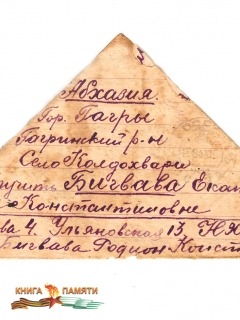 Абхазия.
Гор. Гагры
Гагринский р-н
Село Колдохвари
Бигвава Екат
Константиновне
ва 4. Ульяновская 13,
Бигвава Родион Конст
КНИГА ПАМЯТИ